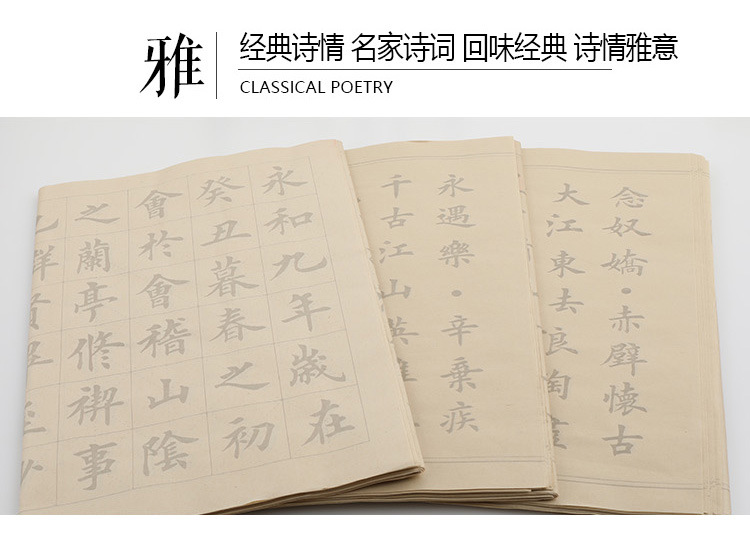 雅
经典诗情 名家诗词 回味经典 诗情雅意
CLASSICAL POETRY
永和九年歲在
癸丑暮春之初
會於會稽山陰
之蘭亭脩禊事
永遇樂·辛棄疾
千古江山英雄
念奴嬌·赤壁懷古
大江東去浪淘